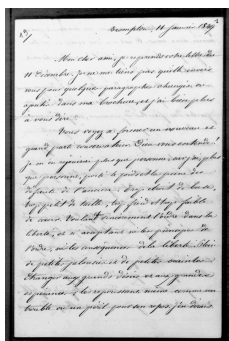 Brompton, 11 Janvier 1849
Mon cher ami, je reponds à votre lettre du
11 Décembre. Je ne me tiens pas quitte envers
vous pour quelques paragraphes changés ou
ajoutés dans ma brochure, et j'ai bien plus
à vous dire.
Vous voyez à former un nouveau et
grand parti conservateur. Dieu vous entende!
Je m'en réjouirai plus que personne, car j'ai, plus
que personne, porté le poids et la peine des
défauts de l'ancien: trop étroit de base,
trop petit de taille, trop froid et trop faible
de cœur. Voulant sincèrement l'ordre dans la
liberté, et n'acceptant ni les principes de
l'ordre, ni les conséquences de la liberté. Plein
de petites jalousies et de petites craintes.
Étranger aux grands désirs et aux grandes
espérances, les repoussant même comme un
trouble ou un péril pour son repos. J'en dirais